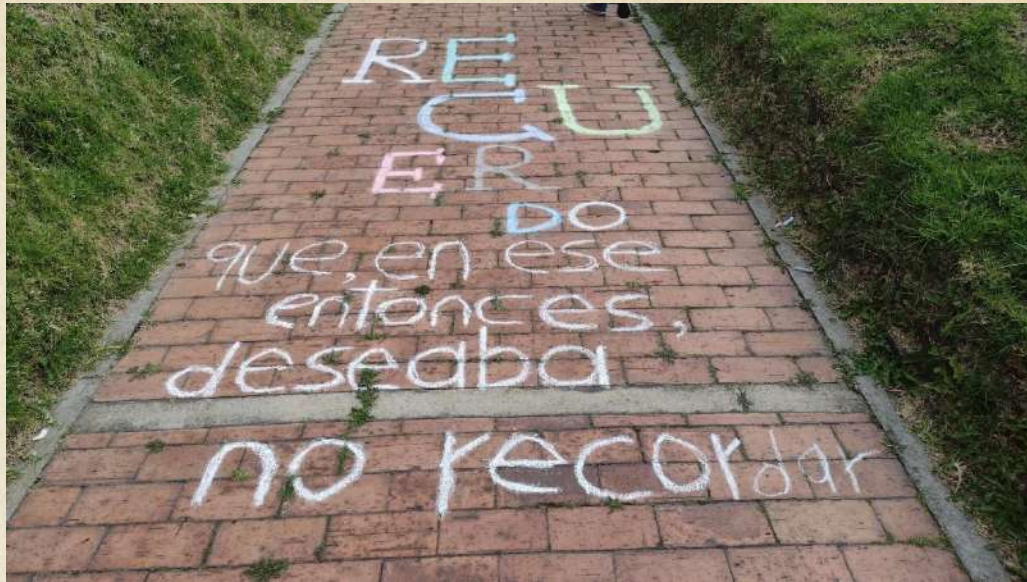 RE
CU
ER
DO
que, en ese
entonces,
deseaba
no recordar